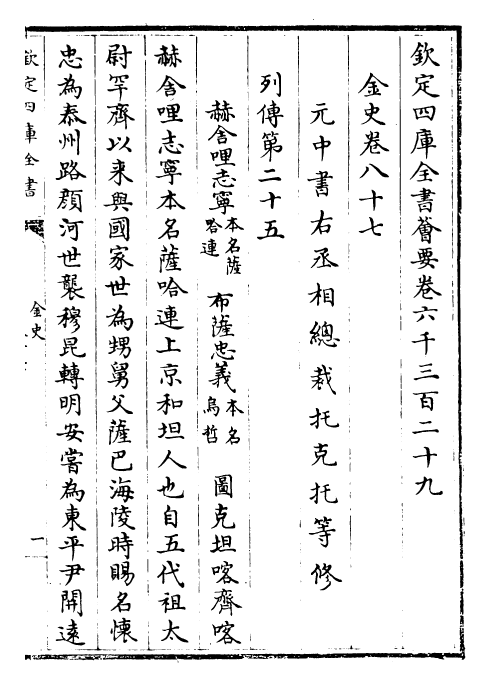 欽定四庫全書薈要卷六千三百二十九
金史卷八十七
元中書右丞相總裁托克托等修
列傳第二十五
赫舍哩志寧本名薩哈連 布薩忠義本名烏哲 圖克坦喀齊喀
赫舍哩志寧本名薩哈連上京和坦人也自五代祖太
尉罕齊以來與國家世為甥舅父薩巴海陵時賜名懷
忠為泰州路顔河世襲穆昆轉明安嘗為東平尹開遠
欽定四庫全書
金史
一